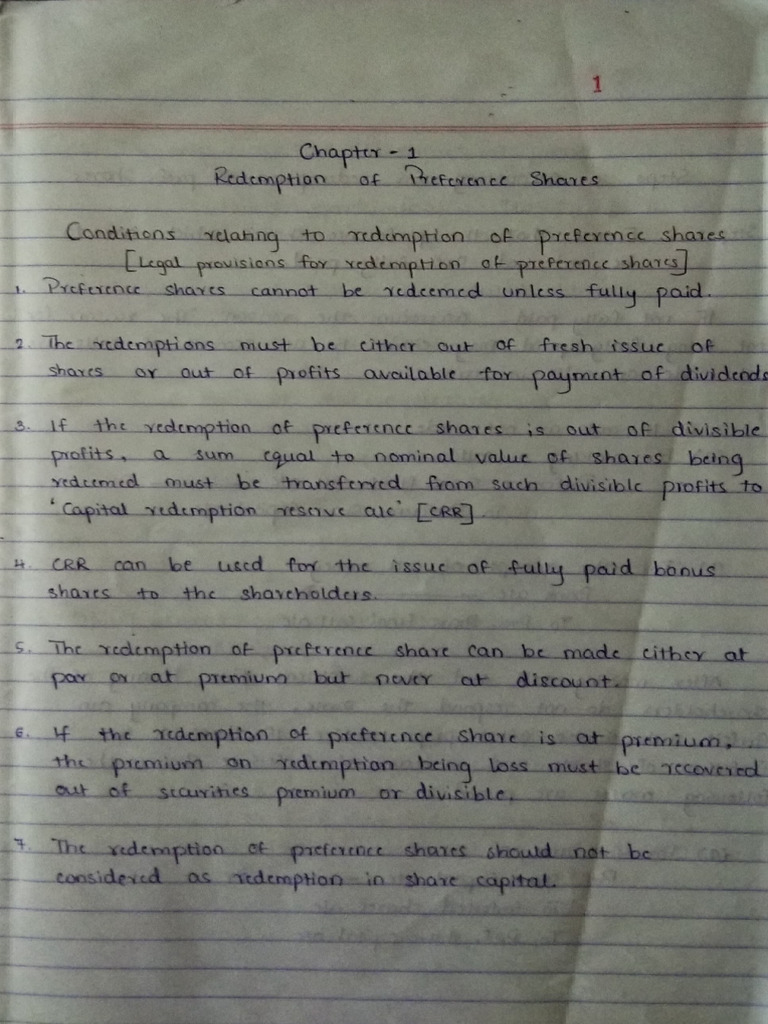 1
Chapter - 1
Redemption of Preference Shares
Conditions relating to redemption of preference shares
[Legal provisions for redemption of preference shares]
1. Preference shares cannot be redeemed unless fully paid.
2. The redemptions must be either out of fresh issue of
shares or out of profits available for payment of dividends
3. If the redemption of preference shares is out of divisible
profits, a sum equal to nominal value of shares being
redeemed must be transferred from such divisible profits to
'Capital redemption reserve a/c' [CRR].
4. CRR can be used for the issue of fully paid bonus
shares to the shareholders.
5. The redemption of preference share can be made either at
par or at premium but never at discount.
6. If the redemption of preference share is at premium,
the premium on redemption being loss must be recovered
out of securities premium or divisible.
7. The redemption of preference shares should not be
considered as redemption in share capital.